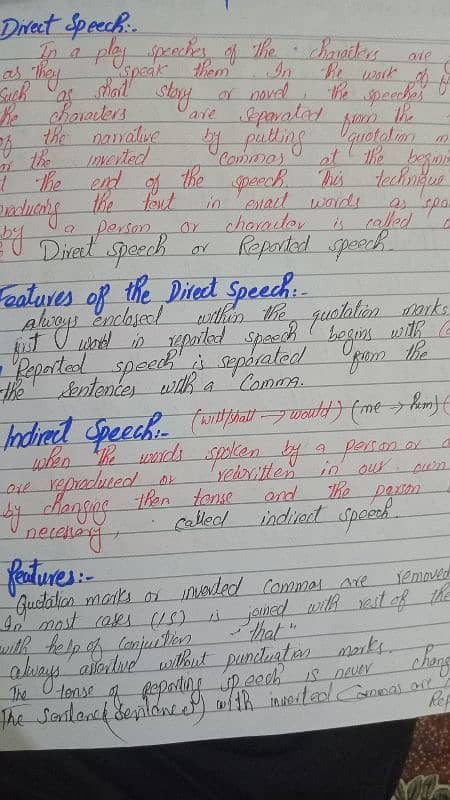 Direct Speech:-
In a play speeches of the characters are
as they speak them. In the work of
Such as short story or novel, the speeches
the characters are separated from the
of the narrative by putting quotation
or the inverted commas at the
the end of the speech. This technique
the text in exact words as
by a person or character is called
Direct speech or Reported speech.
Features of the Direct Speech:-
Always enclosed within the quotation marks
first word in reported speech begins with
Reported speech is separated from the
the sentences with a Comma.
Indirect Speech:- (will/shall → would) (me → him)
when the words spoken by a person or
are reproduced or rewritten in our own
by changing then tense and the person
necessary, called indirect speech.
features:-
Quotation marks or inverted Commas are removed
In most cases (15) is joined with rest of the
with help of Conjuction "that"
always assertive without punctuation marks.
The tense of Reporting speech is never
The Sentence (Sentences) with inverted Commas are